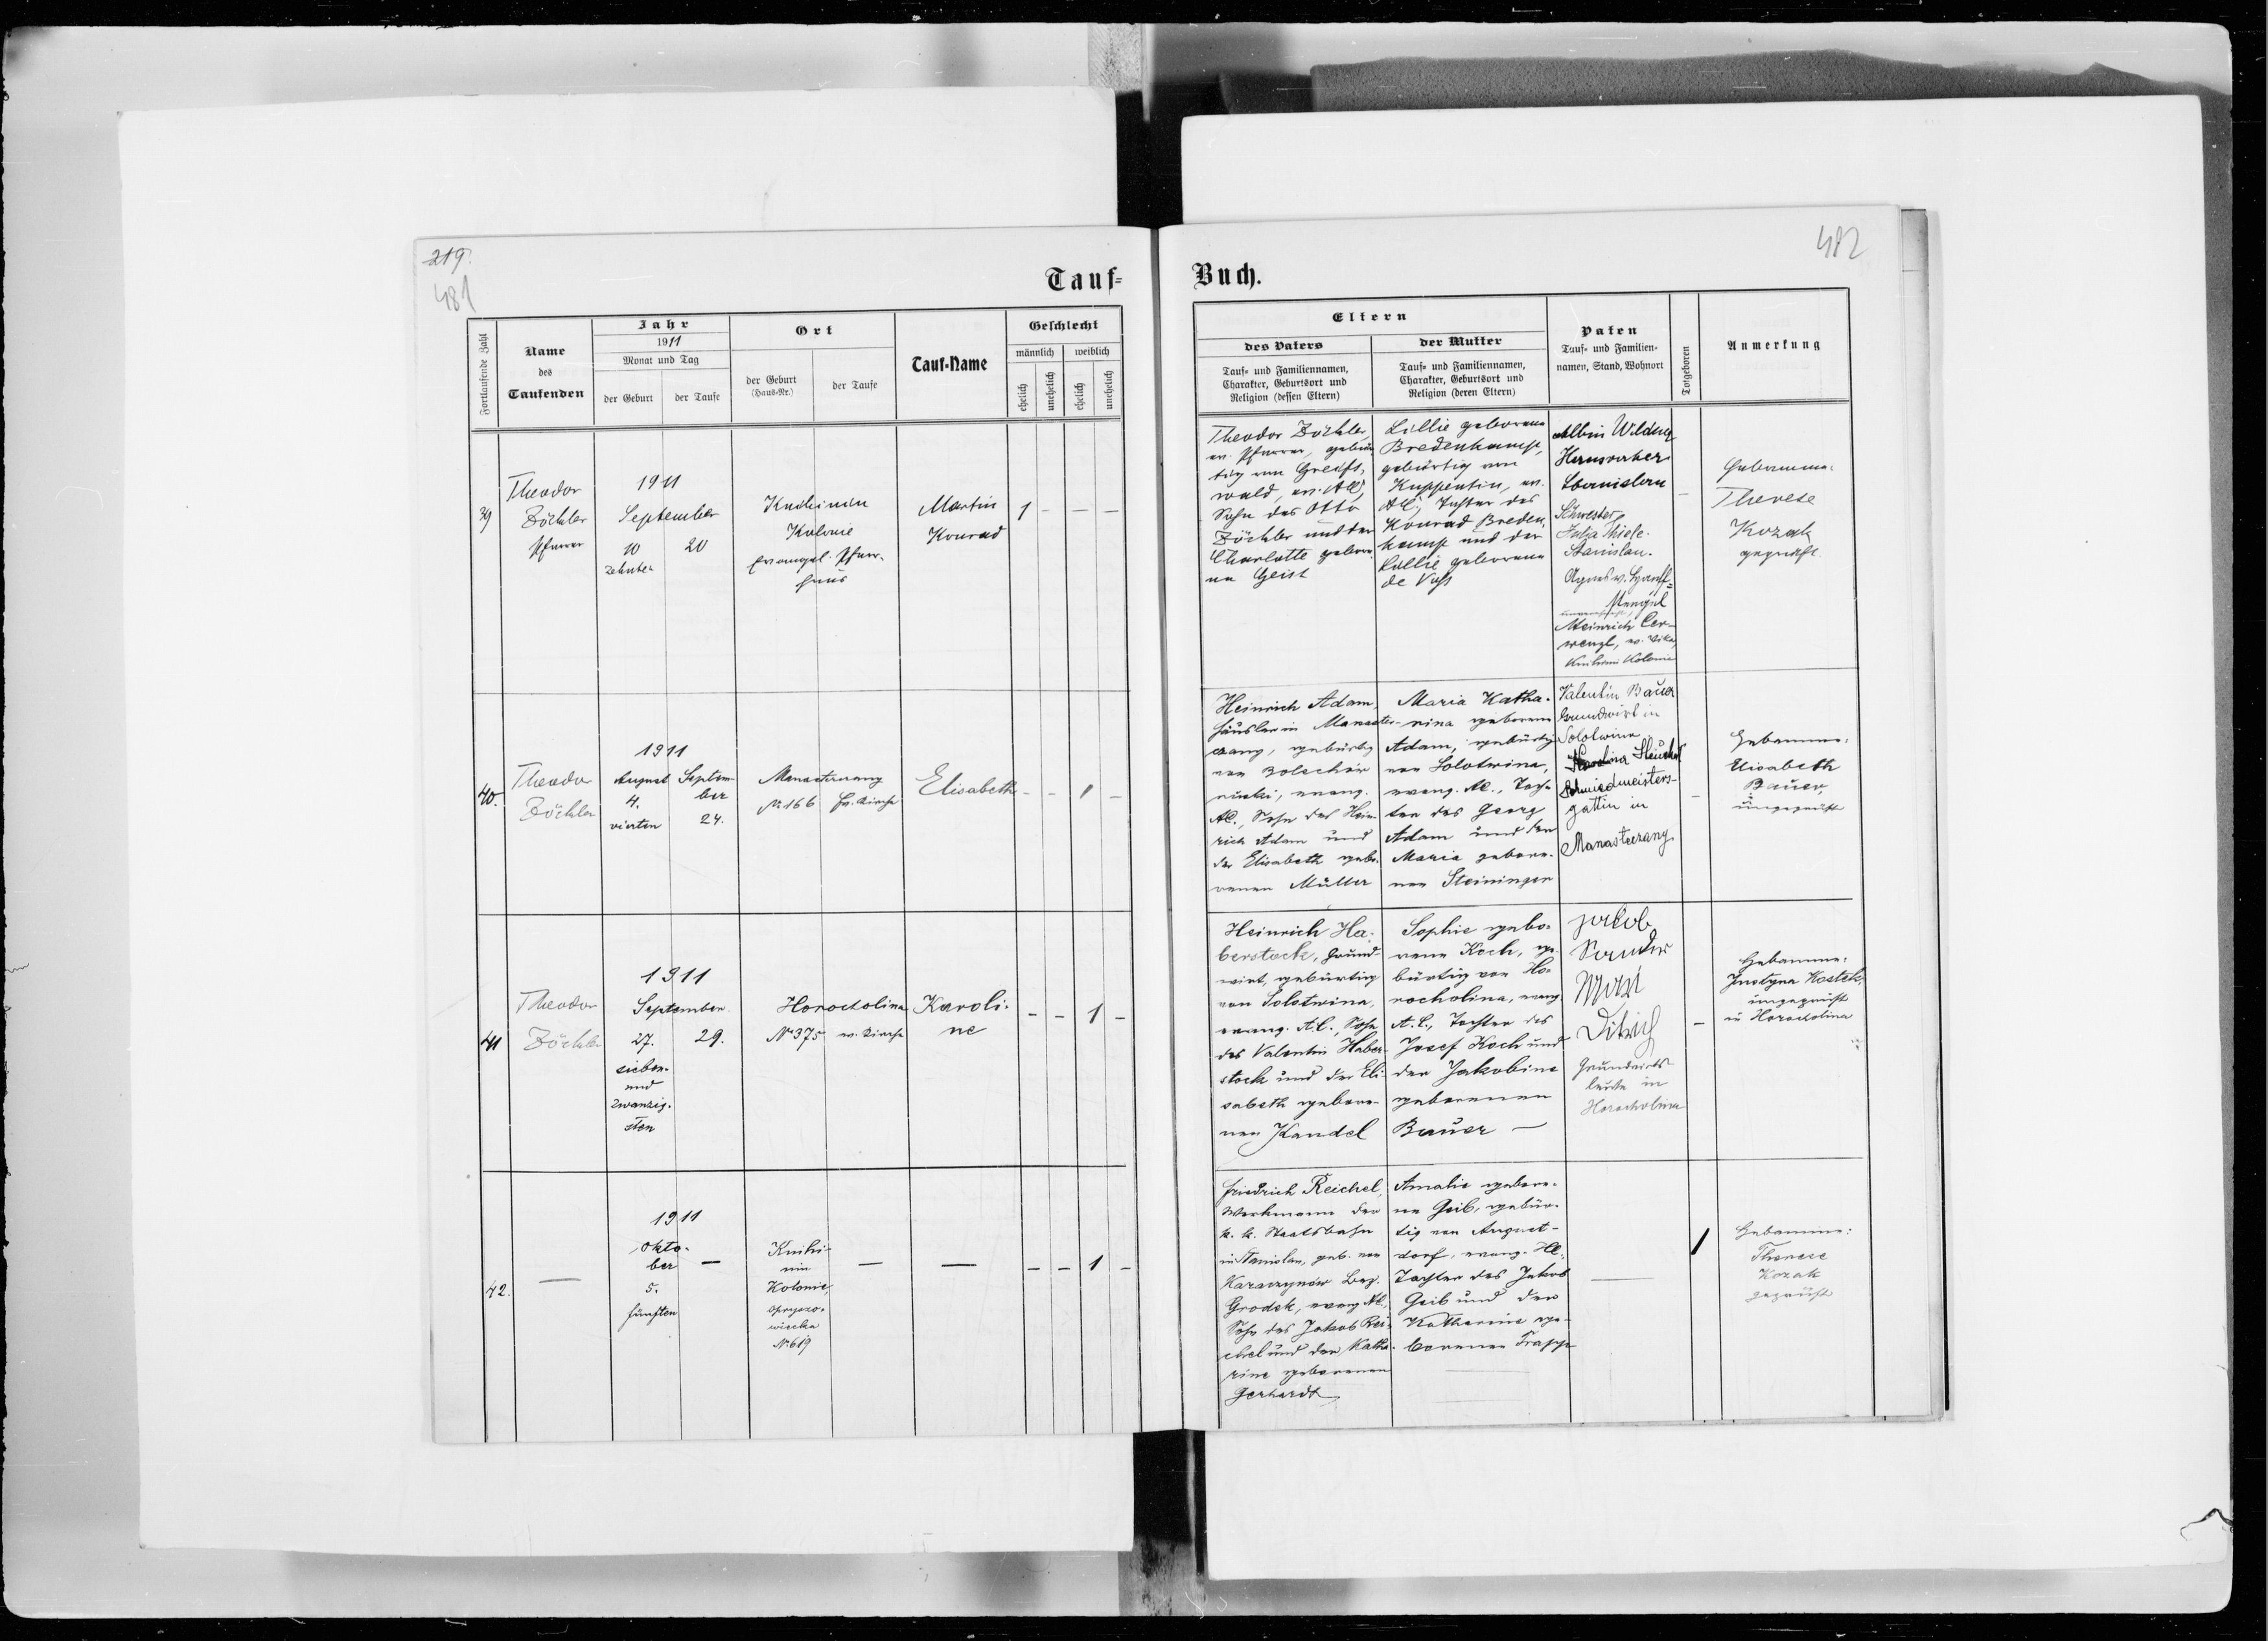 219.
481
482
Tauf=
Buch.
Fortlaufende Zahl
Name
des
Taufenden
Jahr
1911
Monat und Tag
der Geburt
der Taufe
Ort
der Geburt
(Haus-Nr.)
der Taufe
Tauf-Name
Geschlecht
männlich
weiblich
ehelich
unehelich
ehelich
unehelich
Eltern
des Vaters
Tauf= und Familiennamen,
Charakter, Geburtsort und
Religion (dessen Eltern)
der Mutter
Tauf= und Familiennamen,
Charakter, Geburtsort und
Religion (deren Eltern)
Paten
Tauf= und Familien-
namen, Stand, Wohnort
Totgeboren
Anmerkung
39
Theodor
Zöckler
Pfarrer
1911
September
10
zehnten
20
Knihinin
Kolonie
evangel. Pfarr-
haus
Martin
Konrad
1 - - -
Theodor Zöckler,
ev. Pfarrer, gebür-
tig von Greifs-
wald, ev. AC,
Sohn des Otto
Zöckler und der
Charlotte gebore-
ne Geist
Lillie geborene
Bredenkamp,
gebürtig von
Kuppentin, ev.
AC, Tochter des
Konrad Breden-
kamp und der
Lillie geborene
de Voss
Albin
Schwester
Julia Thiele
Stanislau.
Agnes v. Hanff=
stengel
Heinrich
ev. Vikar,
Knihinin Kolonie
-
Hebamme
Therese
Kozak
geprüft
40.
Theodor
Zöckler
1911
August
4.
vierten
Septem-
ber
24.
Manasterzany
Nr 166
Ev. Kirche
Elisabeth
- - 1 -
Heinrich Adam,
Häusler in Manaster-
czany, gebürtig
von
evang.
AC., Sohn des Hein-
rich Adam und
der Elisabeth gebo-
renen Müller
Maria Katha-
rina geborene
Adam, gebürtig
von Solotwina,
evang. AC., Toch-
ter des Georg
Adam und der
Maria gebore-
nen Steininger
Valentin Bauer
Grundwirt in
Solotwina
Schmiedmeisters-
gattin in
Manasterzany
-
Hebamme:
Elisabeth
Bauer,
ungeprüft
41
Theodor
Zöckler
1911
September
27.
sieben-
und
zwanzig-
sten
29.
Horocholina
No 375
ev. Kirche
Karoli-
ne
- - 1 -
Heinrich Ha-
berstock, Grund-
wirt, gebürtig
von Solotwina,
evang. A.C., Sohn
des Valentin Haber-
stock und der Eli-
sabeth gebore-
nen Kandel
Sophie gebo-
rene Koch, ge-
bürtig von Ho-
rocholina, evang.
A.C., Tochter des
Josef Koch und
der Jakobine
geborenen
Bauer -
Jakob
Sander
Mari
Ditrich
Grundwirts-
leute in
Horocholina
-
Hebamme:
Justyna Kostek,
ungeprüft
in Horocholina
42.
-
1911
Okto-
ber
5.
fünften
-
Knihi-
nin
Kolonie,
No 619
-
-
- - 1 -
Friedrich Reichel,
Werkmann der
k. k. Staatsbahn
in Stanislau, geb. von
Karaczynów Bez.
Grodek, evang. AC.,
Sohn des Jakob Rei-
chel und der Katha-
rine geborenen
Gerhardt
Amalie gebore-
ne Geib, gebür-
tig von August-
dorf, evang. HC.,
Tochter des Jakob
Geib und der
Katharine ge-
borenen Trapp
-
1
Hebamme:
Therese
Kozak
geprüft